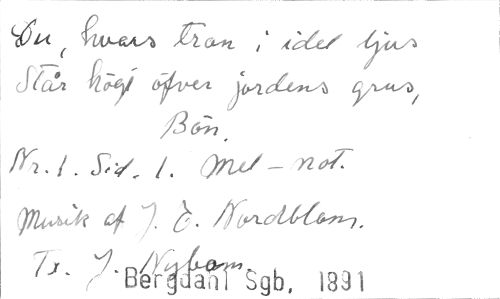 Du, hvars tron i idel ljus
Står högt öfver jordens grus,
Bön.
Nr. 1. Sid. 1. Mel-not.
Musik af J. E. Nordblom.
Tx. J. Nybom.
Bergdahl Sgb, 1891